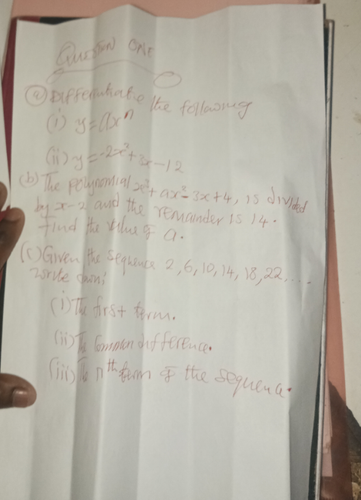 QUESTION ONE
(a) Differentiate the following
(i) y = ax^n
(ii) y = -2x² + 3x - 12
(b) The polynomial x³ + ax² - 3x + 4, is divided
by x - 2 and the remainder is 14.
Find the value of a.
(c) Given the sequence 2, 6, 10, 14, 18, 22, ...
write down
(i) The first term.
(ii) The Common difference.
(iii) The nth term of the sequence.